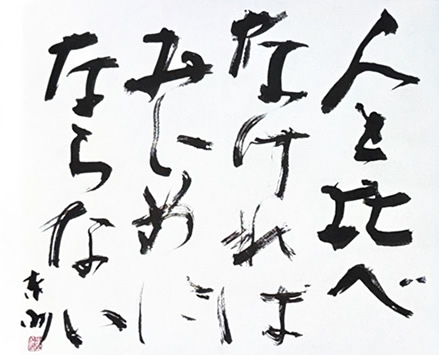 人と比べ
なければ
みじめに
ならない